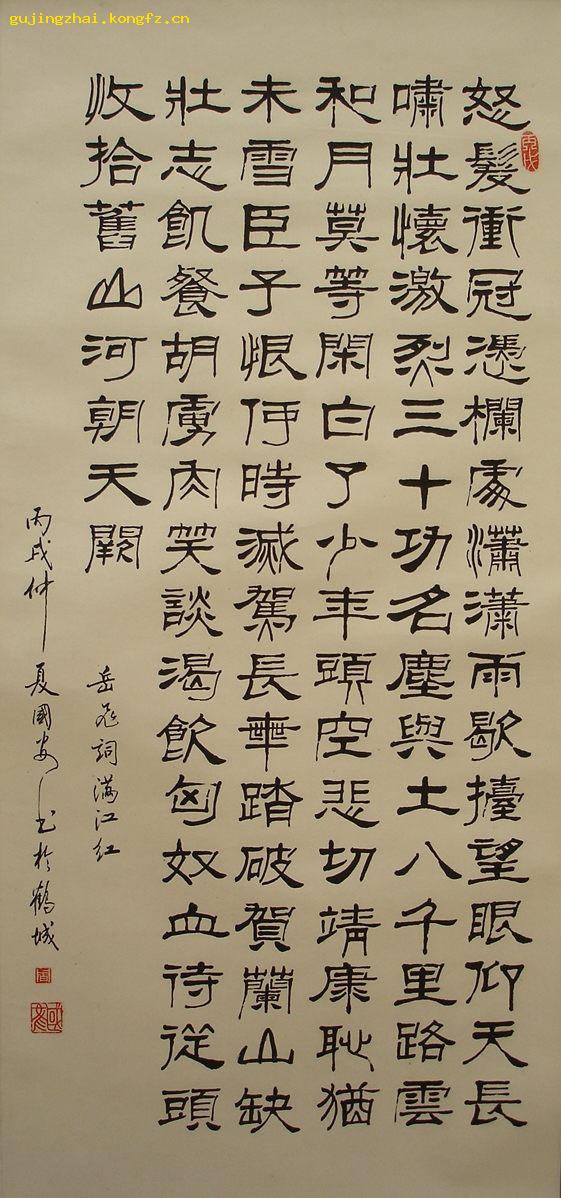 gujingzhai.kongfz.cn
怒髮衝冠憑欄處瀟瀟雨歇擡望眼仰天長
嘯壯懷激烈三十功名塵與土八千里路雲
和月莫等閑白了少年頭空悲切靖康恥猶
未雪臣子恨何時滅駕長車踏破賀蘭山缺
壯志飢餐胡虜肉笑談渴飲匈奴血待從頭
收拾舊山河朝天闕
岳飛詞滿江紅
丙戌仲夏國安书於鶴城